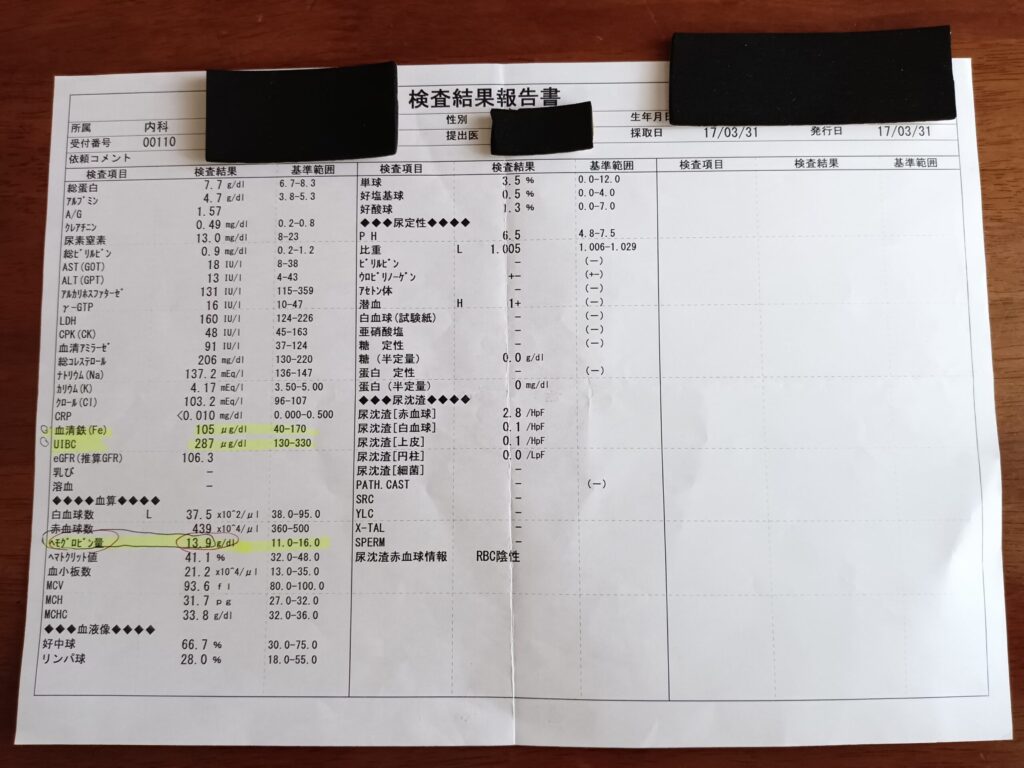 検査結果報告書
所属 内科 性別 生年月日
受付番号 00110 提出医 採取日 17/03/31 発行日 17/03/31
依頼コメント
検査項目 検査結果 基準範囲
総蛋白 7.7 g/dl 6.7-8.3
アルブミン 4.7 g/dl 3.8-5.3
A/G 1.57
クレアチニン 0.49 mg/dl 0.2-0.8
尿素窒素 13.0 mg/dl 8-23
総ビリルビン 0.9 mg/dl 0.2-1.2
AST(GOT) 18 IU/l 8-38
ALT(GPT) 13 IU/l 4-43
アルカリホスファターゼ 131 IU/l 115-359
γ-GTP 16 IU/l 10-47
LDH 160 IU/l 124-226
CPK(CK) 48 IU/l 45-163
血清アミラーゼ 91 IU/l 37-124
総コレステロール 206 mg/dl 130-220
ナトリウム(Na) 137.2 mEq/l 136-147
カリウム(K) 4.17 mEq/l 3.50-5.00
クロール(Cl) 103.2 mEq/l 96-107
CRP <0.010 mg/dl 0.000-0.500
血清鉄(Fe) 105 μg/dl 40-170
UIBC 287 μg/dl 130-330
eGFR(推算GFR) 106.3
乳び -
溶血 -
◆◆◆◆血算◆◆◆◆
白血球数 L 37.5 x10^2/μl 38.0-95.0
赤血球数 439 x10^4/μl 360-500
ヘモグロビン量 13.9 g/dl 11.0-16.0
ヘマトクリット値 41.1 % 32.0-48.0
血小板数 21.2 x10^4/μl 13.0-35.0
MCV 93.6 fl 80.0-100.0
MCH 31.7 pg 27.0-32.0
MCHC 33.8 g/dl 32.0-36.0
◆◆◆血液像◆◆◆◆
好中球 66.7 % 30.0-75.0
リンパ球 28.0 % 18.0-55.0
検査項目 検査結果 基準範囲
単球 3.5 % 0.0-12.0
好塩基球 0.5 % 0.0-4.0
好酸球 1.3 % 0.0-7.0
◆◆◆尿定性◆◆◆◆
PH 6.5 4.8-7.5
比重 L 1.005 1.006-1.029
ビリルビン - (-)
ウロビリノーゲン +- (+-)
アセトン体 - (-)
潜血 H 1+ (-)
白血球(試験紙) - (-)
亜硝酸塩 - (-)
糖 定性 - (-)
糖(半定量) 0.0 g/dl
蛋白 定性 - (-)
蛋白(半定量) 0 mg/dl
◆◆◆尿沈渣◆◆◆◆
尿沈渣[赤血球] 2.8 /HpF
尿沈渣[白血球] 0.1 /HpF
尿沈渣[上皮] 0.1 /HpF
尿沈渣[円柱] 0.0 /LpF
尿沈渣[細菌] -
PATH.CAST - (-)
SRC -
YLC -
X-TAL -
SPERM -
尿沈渣赤血球情報 RBC陰性
検査項目 検査結果 基準範囲